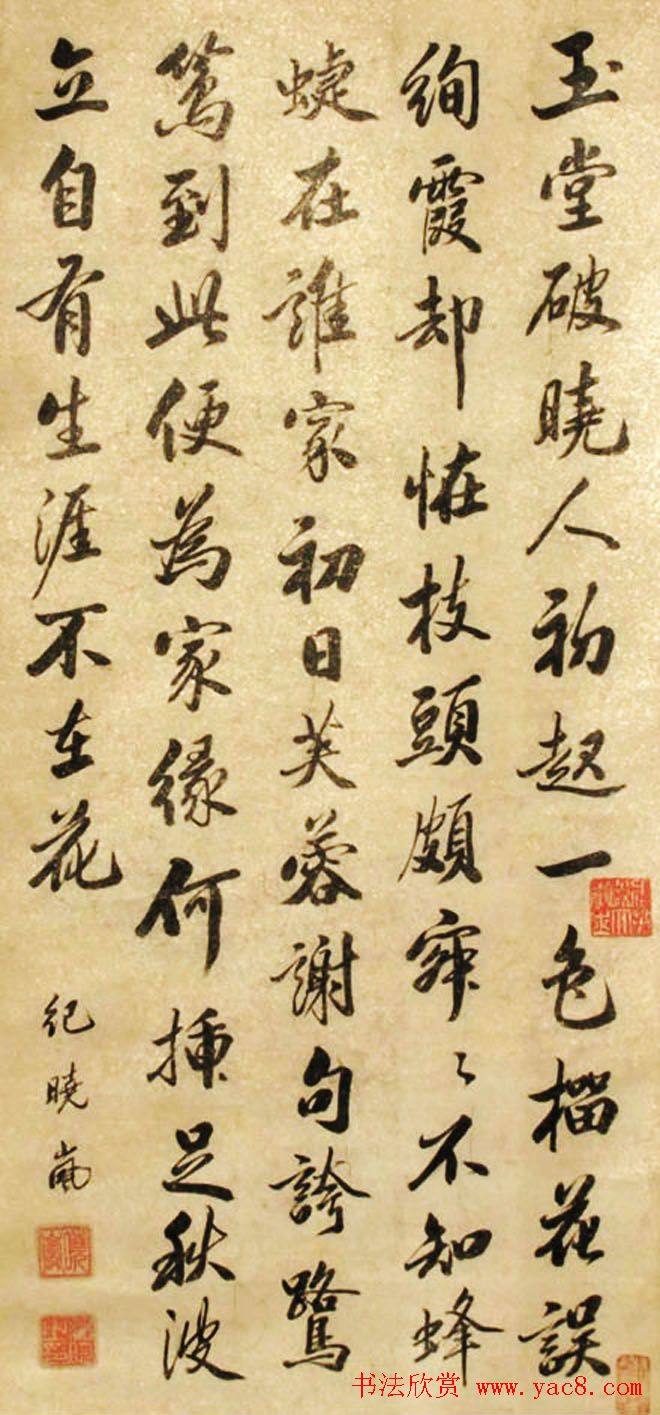 玉堂破曉人初起一色榴花誤
絢霞却怪枝頭頗寂〻不知蜂
蜨在誰家初日芙蓉謝句誇鷺
篤到此便為家緣何插足秋波
立自有生涯不在花
紀曉嵐
书法欣赏 www.yac8.com